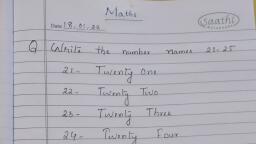 Maths
Saathi
Date 18.01.24
Q Write the number names 21-25
21- Twenty One
22- Twenty Two
23- Twenty Three
24- Twenty Four